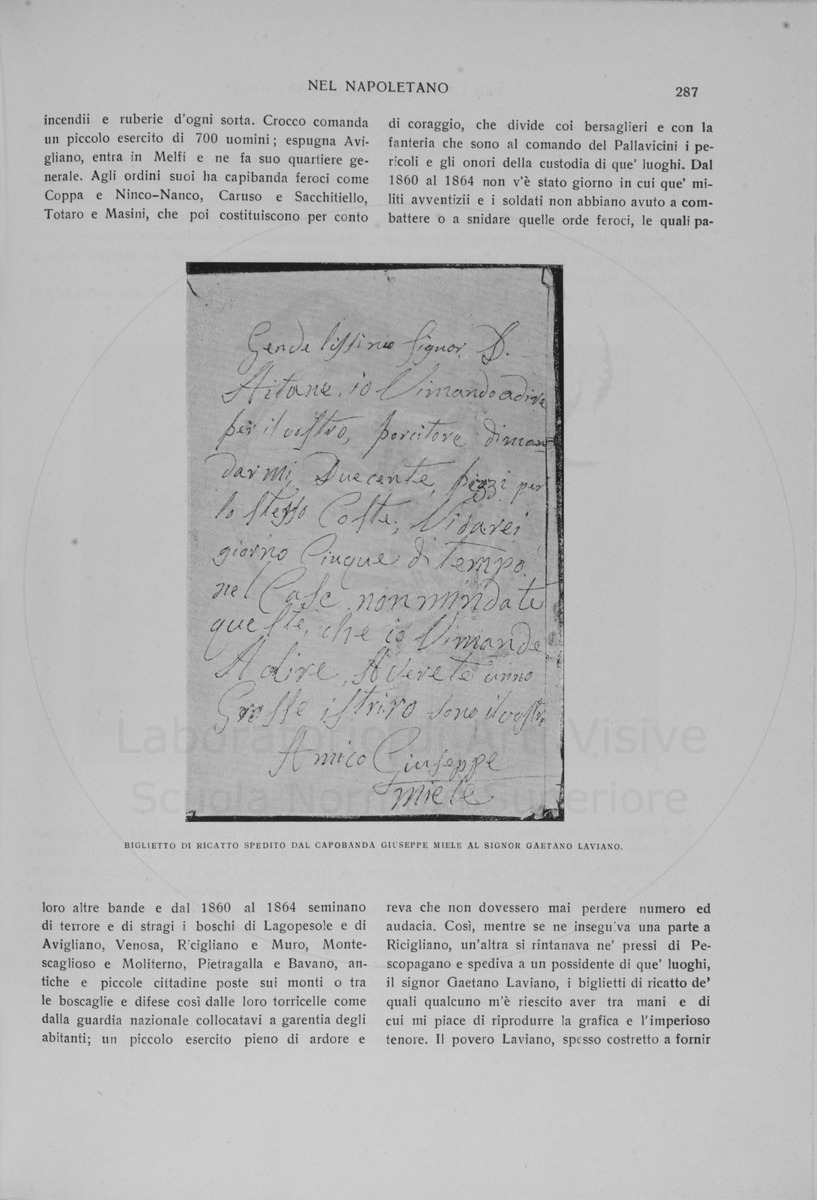 NEL NAPOLETANO
287
incendii e ruberie d'ogni sorta. Crocco comanda
un piccolo esercito di 700 uomini; espugna Avi-
gliano, entra in Melfi e ne fa suo quartiere ge-
nerale. Agli ordini suoi ha capibanda feroci come
Coppa e Ninco-Nanco, Caruso e Sacchitiello,
Totaro e Masini, che poi costituiscono per conto
di coraggio, che divide coi bersaglieri e con la
fanteria che sono al comando del Pallavicini i pe-
ricoli e gli onori della custodia di que' luoghi. Dal
1860 al 1864 non v'è stato giorno in cui que' mi-
liti avventizii e i soldati non abbiano avuto a com-
battere o a snidare quelle orde feroci, le quali pa-
Gendelissimo Signor D.
Aitane, io Vimandoadire
per il vostro, porcitore diman
darmi, Duecente, pezzi per
lo stesso Coste, Vidarei
giorno Cinque di tempo
nel Case nonmindate
queste, che io Vimande
Adire, Averete unno
Grosse istriro sono ilvostro
Amico Giuseppe
Miele
BIGLIETTO DI RICATTO SPEDITO DAL CAPOBANDA GIUSEPPE MIELE AL SIGNOR GAETANO LAVIANO.
loro altre bande e dal 1860 al 1864 seminano
di terrore e di stragi i boschi di Lagopesole e di
Avigliano, Venosa, Ricigliano e Muro, Monte-
scaglioso e Moliterno, Pietragalla e Bavano, an-
tiche e piccole cittadine poste sui monti o tra
le boscaglie e difese così dalle loro torricelle come
dalla guardia nazionale collocatavi a garentia degli
abitanti; un piccolo esercito pieno di ardore e
reva che non dovessero mai perdere numero ed
audacia. Così, mentre se ne inseguiva una parte a
Ricigliano, un'altra si rintanava ne' pressi di Pe-
scopagano e spediva a un possidente di que' luoghi,
il signor Gaetano Laviano, i biglietti di ricatto de'
quali qualcuno m'è riescito aver tra mani e di
cui mi piace di riprodurre la grafica e l'imperioso
tenore. Il povero Laviano, spesso costretto a fornir
Laboratorio di Arti Visive
Scuola Normale Superiore